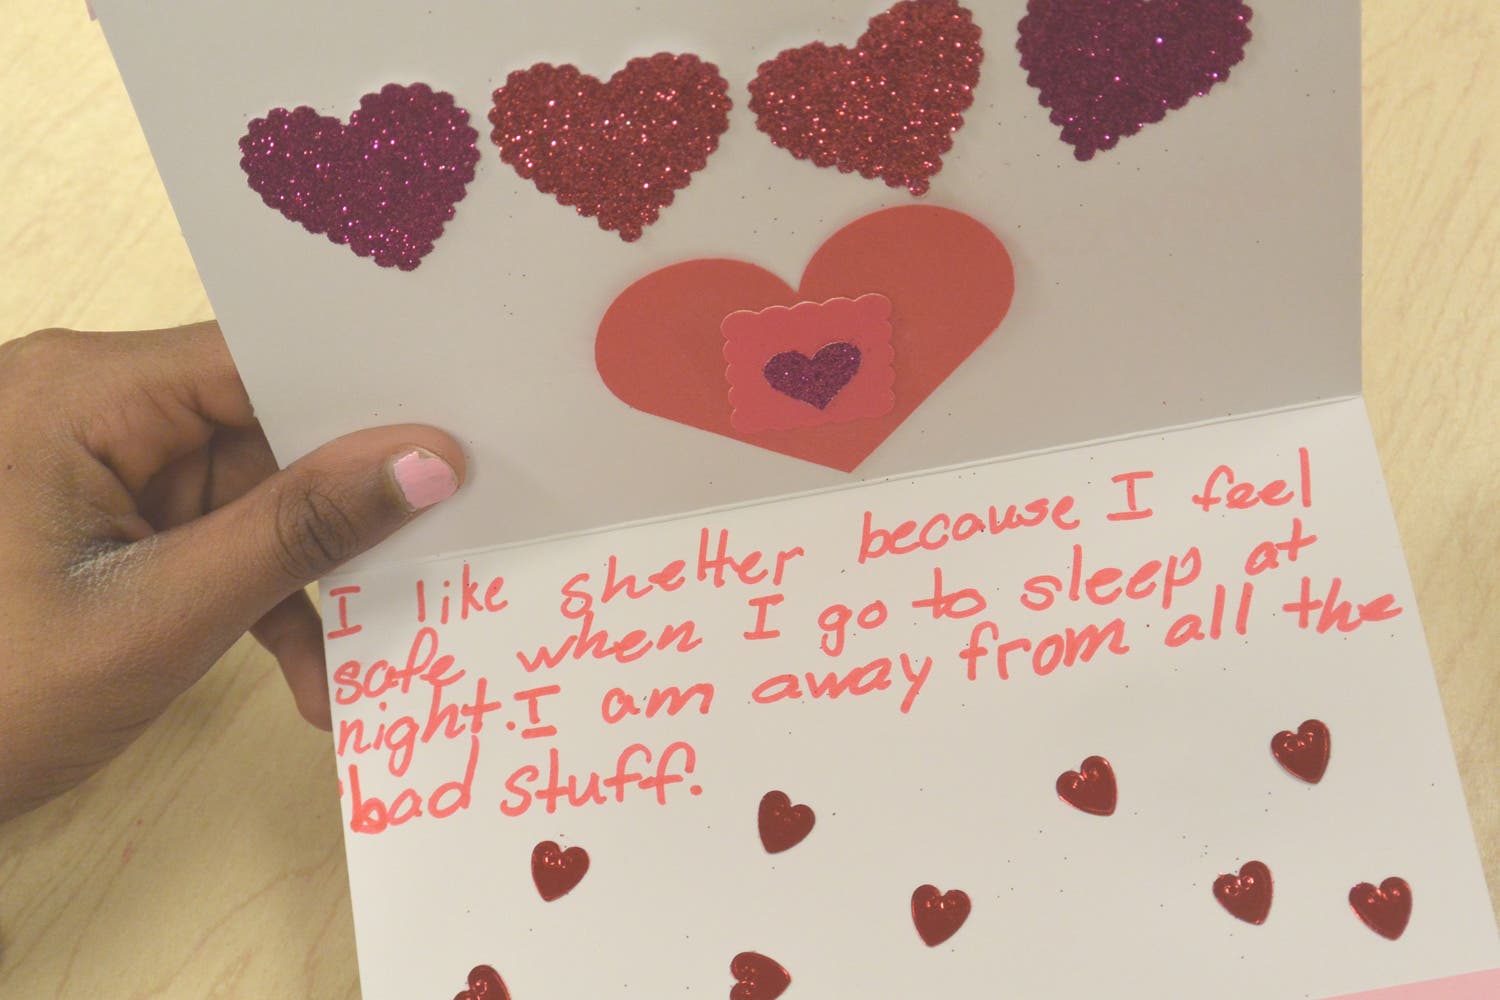 I like shelter because I feel
safe when I go to sleep at
night. I am away from all the
bad stuff.